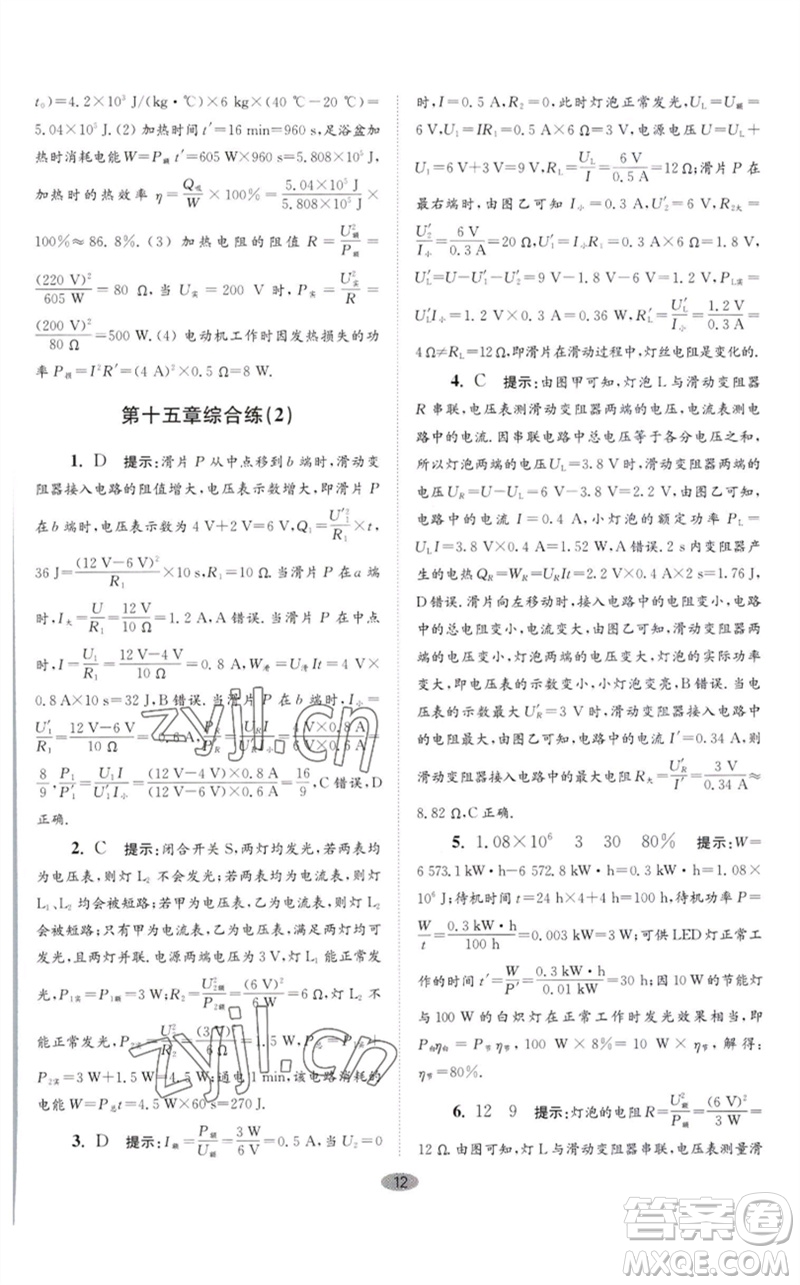 t₀)=4.2×10³ J/(kg·℃)×6 kg×(40℃-20℃)=
5.04×10⁵ J. (2) 加热时间 t′=16 min=960 s,足浴盆加
热时消耗电能 W=P额 t′=605 W×960 s=5.808×10⁵ J,
加热时的热效率 η=Q吸/W×100%=5.04×10⁵ J/5.808×10⁵ J×
100%≈86.8%. (3) 加热电阻的阻值 R=U额²/P额=
(220 V)²/605 W=80 Ω,当 U实=200 V 时,P实=U实²/R=
(200 V)²/80 Ω=500 W. (4) 电动机工作时因发热损失的功
率 P损=I²R′=(4 A)²×0.5 Ω=8 W.
第十五章综合练(2)
1. D 提示:滑片 P 从中点移到 b 端时,滑动变
阻器接入电路的阻值增大,电压表示数增大,即滑片 P
在 b 端时,电压表示数为 4 V+2 V=6 V,Q₁=U′₁²/R₁×t,
36 J=(12 V-6 V)²/R₁×10 s,R₁=10 Ω. 当滑片 P 在 a 端
时,I大=U/R₁=12 V/10 Ω=1.2 A,A 错误. 当滑片 P 在中点
时,I=U₁/R₁=(12 V-4 V)/10 Ω=0.8 A,W滑=U滑It=4 V×
0.8 A×10 s=32 J,B 错误. 当滑片 P 在 b 端时,I小=
U′₁/R₁=(12 V-6 V)/10 Ω=0.6 A,P/P′=UI/UI小=(4 V×0.8 A)/(6 V×0.6 A)=
8/9,P₁/P′₁=U₁I/U′₁I小=(12 V-4 V)×0.8 A/(12 V-6 V)×0.6 A=16/9,C 错误,D
正确.
2. C 提示:闭合开关 S,两灯均发光,若甲、乙均
为电压表,则灯 L₂ 不会发光;若甲、乙均为电流表,则灯
L₁、L₂ 均会被短路;若甲为电压表、乙为电流表,则灯 L₂
会被短路;只有甲为电流表、乙为电压表,满足两灯均可
发光,且两灯并联. 电源两端电压为 3 V,灯 L₁ 正常发
光,P₁实=P₁额=3 W;R₂=U额²/P₂额=(6 V)²/6 W=6 Ω,灯 L₂ 不
能正常发光,P₂实=U实²/R₂=(3 V)²/6 Ω=1.5 W,P=P₁实+
P₂实=3 W+1.5 W=4.5 W;通电 1 min,该电路消耗的
电能 W=Pt=4.5 W×60 s=270 J.
3. D 提示:I额=P额/U额=3 W/6 V=0.5 A,当 U₂=0
时,I=0.5 A,R₂=0,此时灯泡正常发光,UL=U额=
6 V,U₁=IR₁=0.5 A×6 Ω=3 V,电源电压 U=UL+
U₁=6 V+3 V=9 V,RL=UL/I=6 V/0.5 A=12 Ω;滑片 P 在
最右端时,由图乙可知 I小=0.3 A,U′₂=6 V,R₂大=
U′₂/I小=6 V/0.3 A=20 Ω,U′₁=I小R₁=0.3 A×6 Ω=1.8 V,
U′L=U-U′₁-U′₂=9 V-1.8 V-6 V=1.2 V,PL实=
U′LI小=1.2 V×0.3 A=0.36 W,R′L=U′L/I小=1.2 V/0.3 A=
4 Ω≠RL=12 Ω,即滑片在滑动过程中,灯丝电阻是变化的.
4. C 提示:由图甲可知,灯泡 L 与滑动变阻器
R 串联,电压表测滑动变阻器两端的电压,电流表测电
路中的电流. 因串联电路中总电压等于各部分电压之和,
所以灯泡两端的电压 UL=3.8 V 时,滑动变阻器两端的
电压 UR=U-UL=6 V-3.8 V=2.2 V,由图乙可知,
电路中的电流 I=0.4 A,小灯泡的额定功率 P额=
ULI=3.8 V×0.4 A=1.52 W,A 错误. 2 s 内变阻器产
生的电热 QR=W=URIt=2.2 V×0.4 A×2 s=1.76 J,
D 错误. 滑片向左移动时,接入电路中的电阻变小,电路
中的总电阻变小,电流变大,由图乙可知,灯泡的实际功率
变大,电压表的示数变小,小灯泡变亮,B 错误. 当电压
表的示数最大 U′R=3 V 时,滑动变阻器接入电路中的
电阻最大,由图乙可知,电路中的电流 I′=0.34 A,则
滑动变阻器接入电路中的最大电阻 R大=U′R/I′=3 V/0.34 A≈
8.82 Ω,C 正确.
5. 1.08×10⁶ 3 30 80% 提示:W=
6 573.1 kW·h-6 572.8 kW·h=0.3 kW·h=1.08×
10⁶ J;待机时间 t=24 h×4+4 h=100 h,待机功率 P=
W/t=0.3 kW·h/100 h=0.003 kW=3 W;可供 LED 灯正常工
作的时间 t′=W/P′=0.3 kW·h/0.01 kW=30 h;因 10 W 的节能灯
与 100 W 的白炽灯在正常工作时发光效果相当,即
P白η白=P节η节,100 W×8%=10 W×η节,解得 η节=80%.
6. 12 9 提示:灯泡的电阻 R=U额²/P额=(6 V)²/3 W=
12 Ω. 由图可知,灯泡与滑动变阻器串联,电压表测量滑
12
zyjl.cn
zyjl.cn
答案卷
MXQE.COM